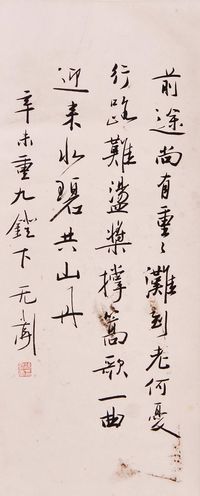 前途尚有重〻灘到老何憂
行路難盪槳撑篙歌一曲
迎来水碧共山丹
辛未重九鐙下 无